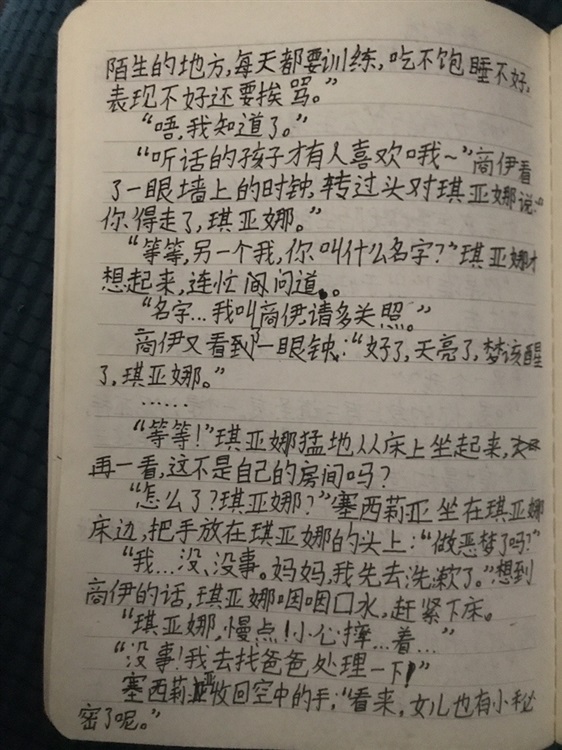 陌生的地方,每天都要训练,吃不饱睡不好,
表现不好还要挨骂。”
“唔,我知道了。”
“听话的孩子才有人喜欢哦~”商伊看
了一眼墙上的时钟,转过头对琪亚娜说:“
你得走了,琪亚娜。”
“等等,另一个我,你叫什么名字?”琪亚娜才
想起来,连忙问道。
“名字…我叫商伊,请多关照。”
商伊又看到一眼钟,:“好了,天亮了,梦该醒
了,琪亚娜。”
……
“等等!”琪亚娜猛地从床上坐起来,
再一看,这不是自己的房间吗?
“怎么了?琪亚娜?”塞西莉亚坐在琪亚娜
床边,把手放在琪亚娜的头上:“做恶梦了吗?”
“我…没、没事。妈妈,我先去洗漱了。”想到
商伊的话,琪亚娜咽咽口水,赶紧下床。
“琪亚娜,慢点!小心摔…着…”
“没事!我去找爸爸处理一下!”
塞西莉亚收回空中的手:“看来,女儿也有小秘
密了呢。”